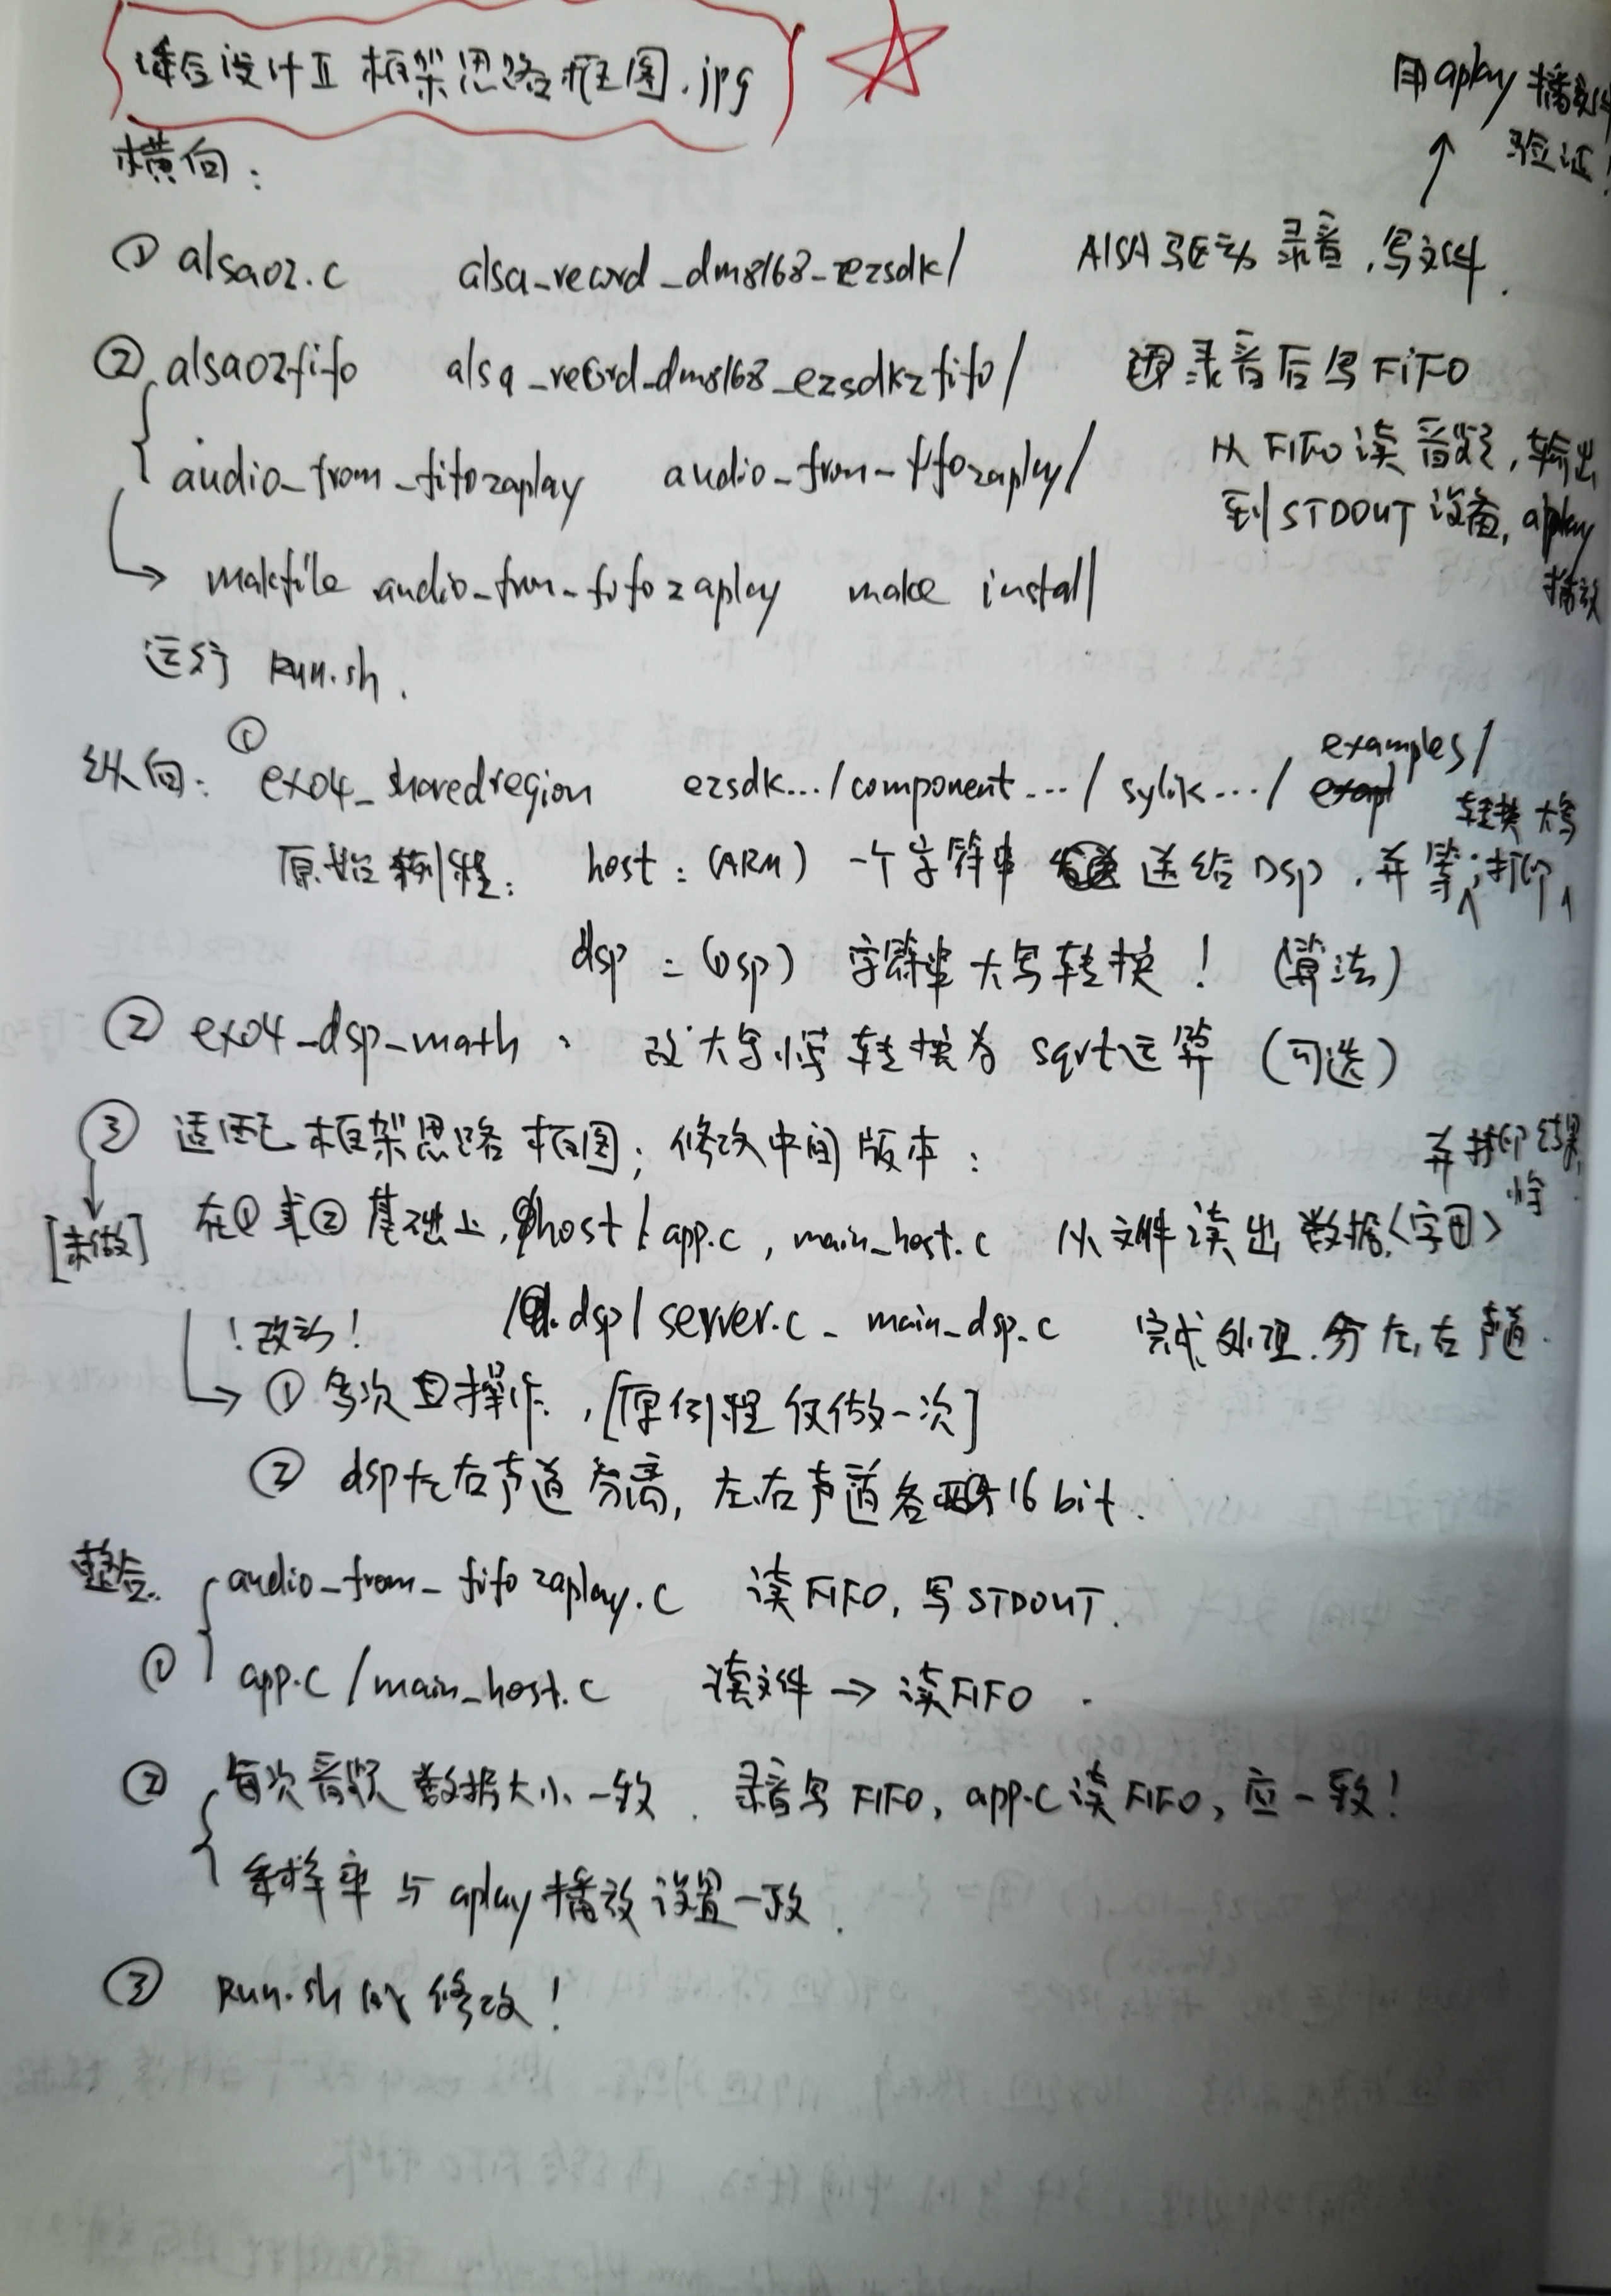 综合设计Ⅱ 框架思路框图.jpg
用aplay播文件
验证!
横向:
① alsa02.c alsa_record_dm8168_ezsdk/ AlSA驱动 录音,写文件.
② alsa02fifo alsa_record_dm8168_ezsdk2fifo/ 录音后写FiFO
audio_from_fifo2aplay audio_from_fifo2aplay/ 从FIFO读音频,输出
到STDOUT设备, aplay
播放
makfile audio_from_fifo2aplay make install
运行 Run.sh.
纵向: ① ex04_sharedregion ezsdk.../component.../ sylik.../ examples/
转换大写
原始例程: host: (ARM) 一个字符串 送给Dsp, 并等;打印
dsp: (Dsp) 字符串大写转换! (算法)
② ex04_dsp_math: 改大写小写转换为 sqrt运算 (可选)
③ 适配框架思路框图; 修改中间版本:
并打印结果,
[未做]
在①或②基础上, host/app.c, main_host.c 从文件读出数据<字母>
!改动! /dsp/server.c_ main_dsp.c 完成处理.分左,右声道.
① 多次操作, [原例程仅做一次]
② dsp左右声道分离, 左右声道各16 bit.
整合. audio_from_fifo2aplay.c 读FIFO, 写STDOUT.
① app.c/main_host.c 读文件 → 读FIFO.
② 每次音频数据大小一致. 录音写FIFO, app.c读FIFO, 应一致!
采样率与aplay播放设置一致.
③ Run.sh的修改!